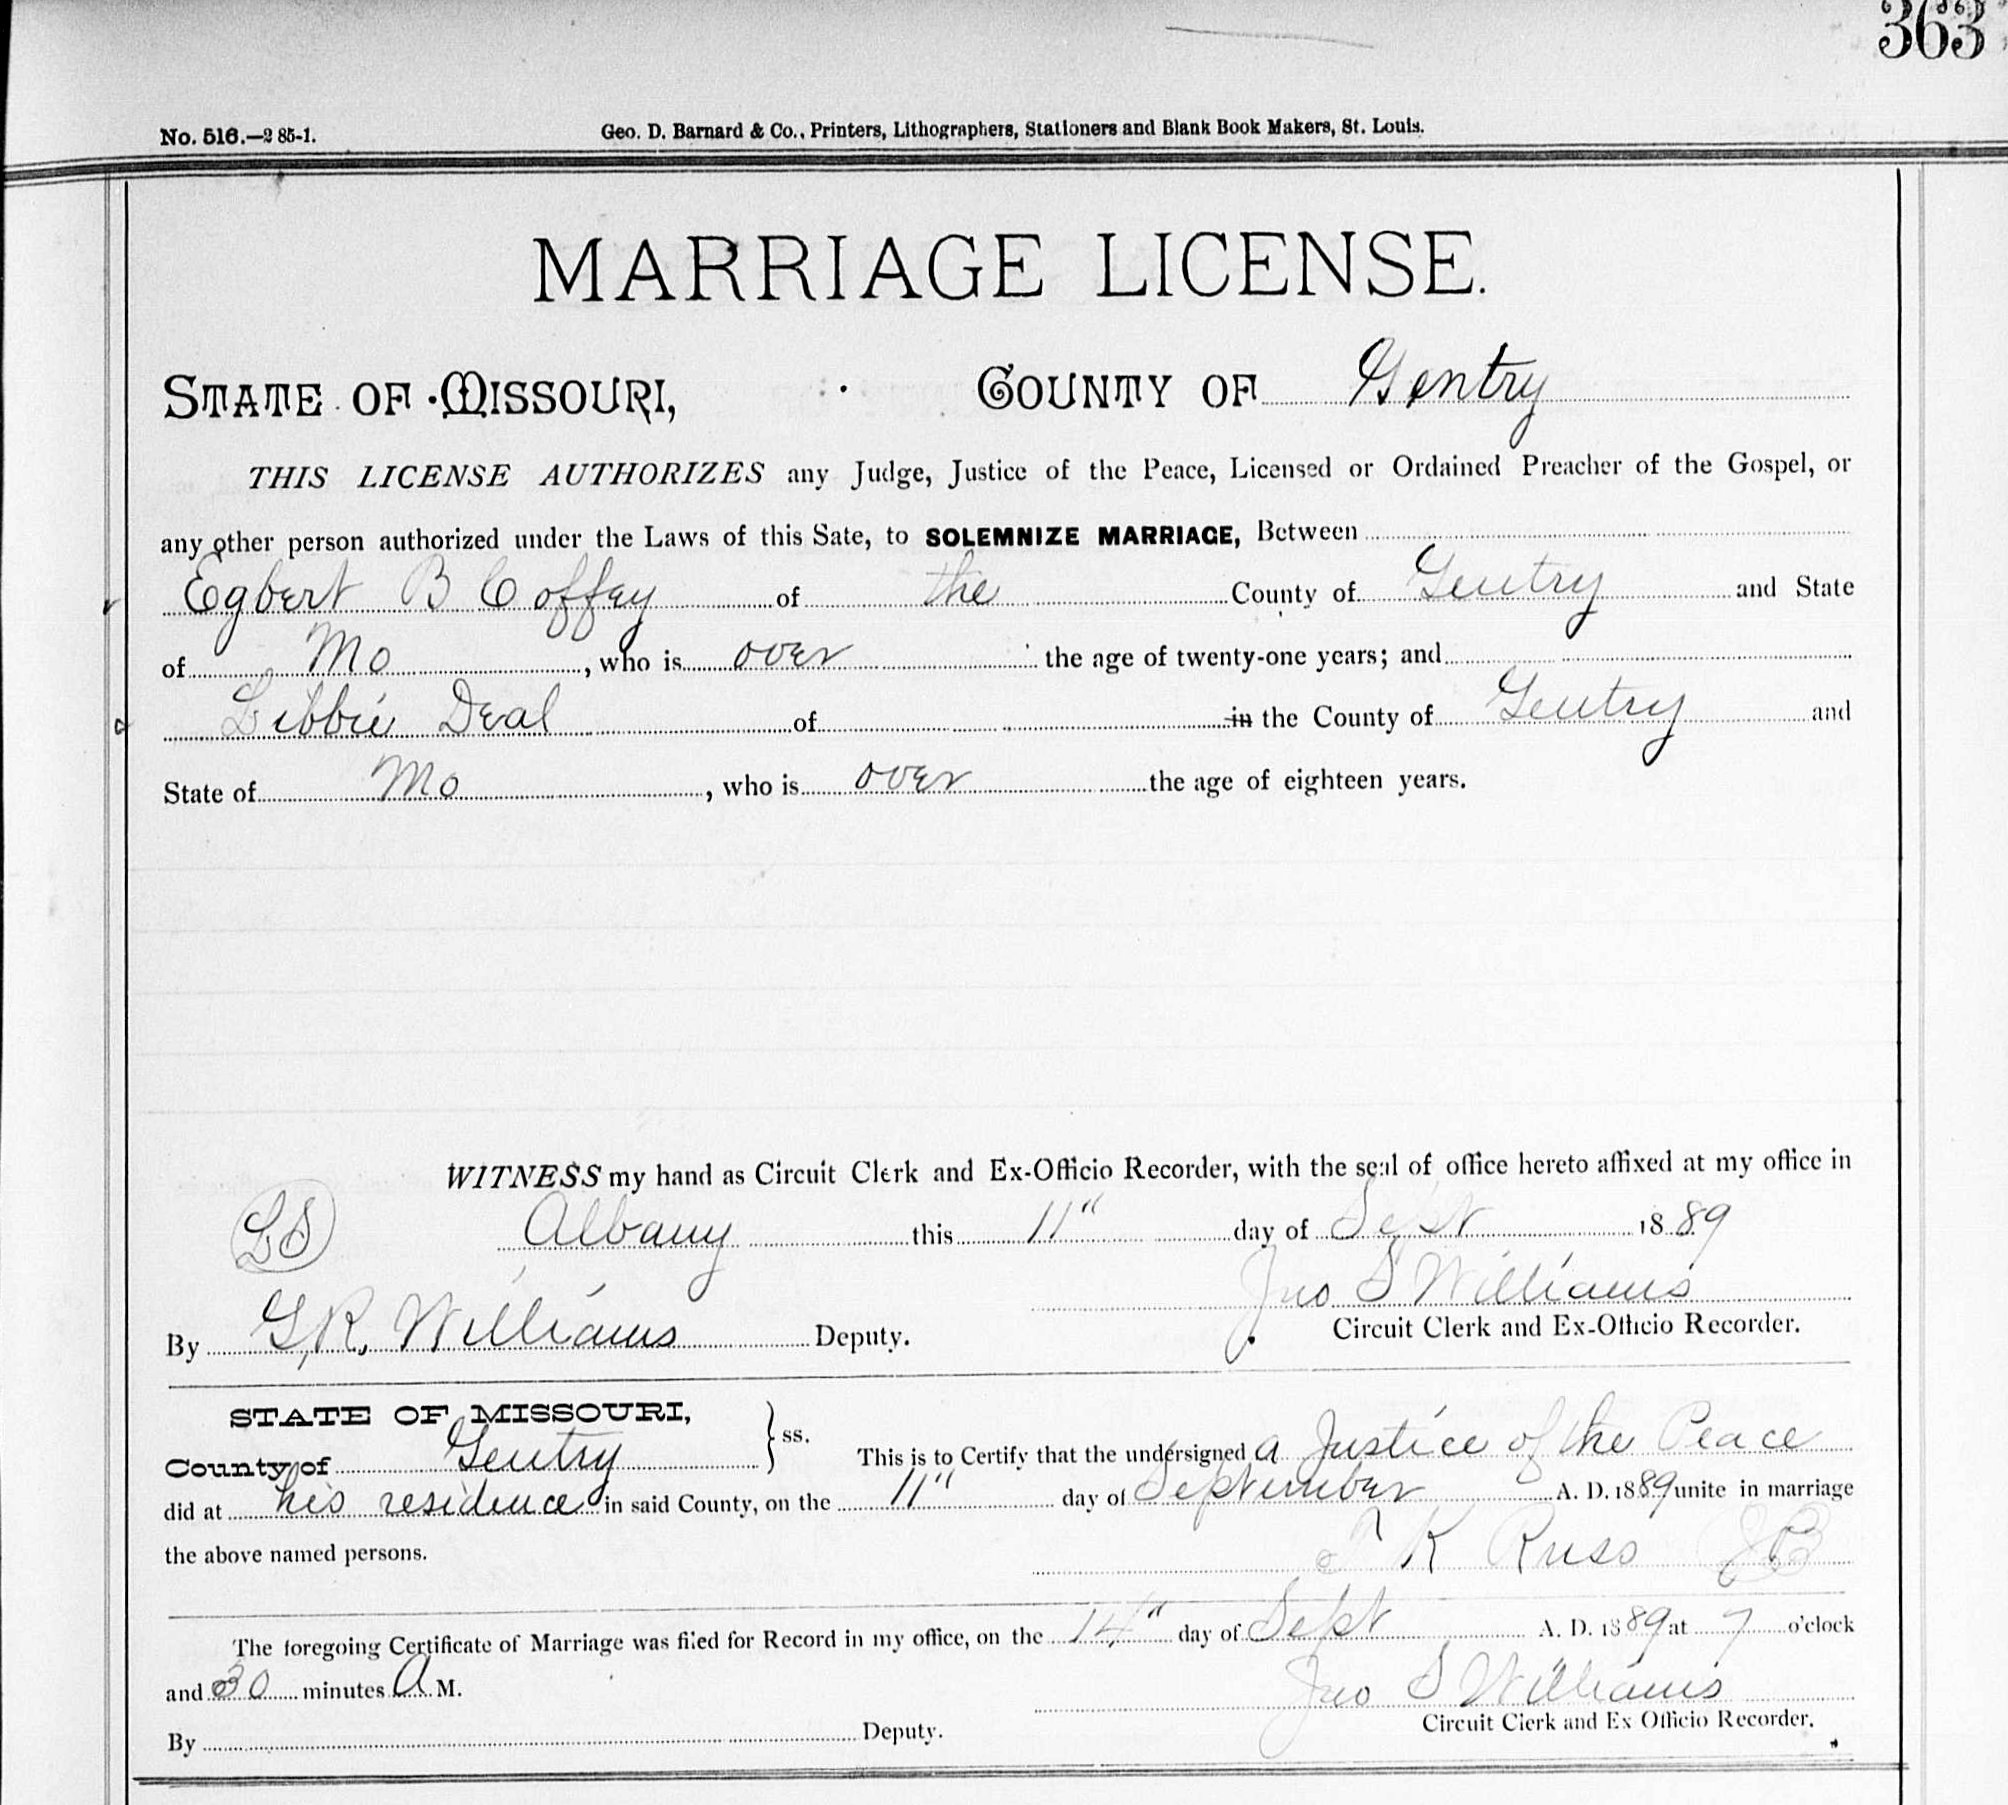 363
No. 516.—2 85-1.
Geo. D. Barnard & Co., Printers, Lithographers, Stationers and Blank Book Makers, St. Louis.
MARRIAGE LICENSE.
STATE OF MISSOURI, COUNTY OF Gentry
THIS LICENSE AUTHORIZES any Judge, Justice of the Peace, Licensed or Ordained Preacher of the Gospel, or
any other person authorized under the Laws of this Sate, to SOLEMNIZE MARRIAGE, Between
Egbert B Coffey of the County of Gentry and State
of Mo, who is over the age of twenty-one years; and
Libbie Deal of in the County of Gentry and
State of Mo, who is over the age of eighteen years.
WITNESS my hand as Circuit Clerk and Ex-Officio Recorder, with the seal of office hereto affixed at my office in
LS Albany this 11" day of Sept 1889
Jno S Williams
By G,R, Williams Deputy. Circuit Clerk and Ex-Officio Recorder.
STATE OF MISSOURI,
County of Gentry } ss. This is to Certify that the undersigned a Justice of the Peace
did at his residence in said County, on the 11" day of September A. D. 1889 unite in marriage
the above named persons. K Russ
The foregoing Certificate of Marriage was filed for Record in my office, on the 14" day of Sept A. D. 1889 at 7 o'clock
and 30 minutes A M. Jno S Williams
By Deputy. Circuit Clerk and Ex Officio Recorder.